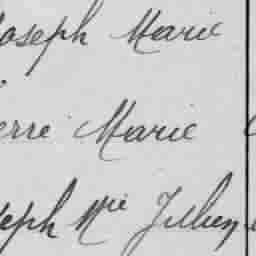 Joseph Marie
erre Marie
seph Mie Jullien